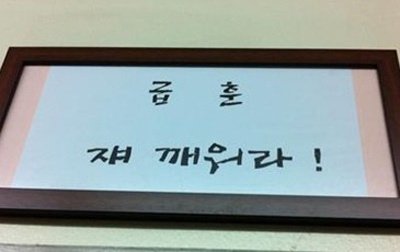 급 훈
쟤 깨워라 !